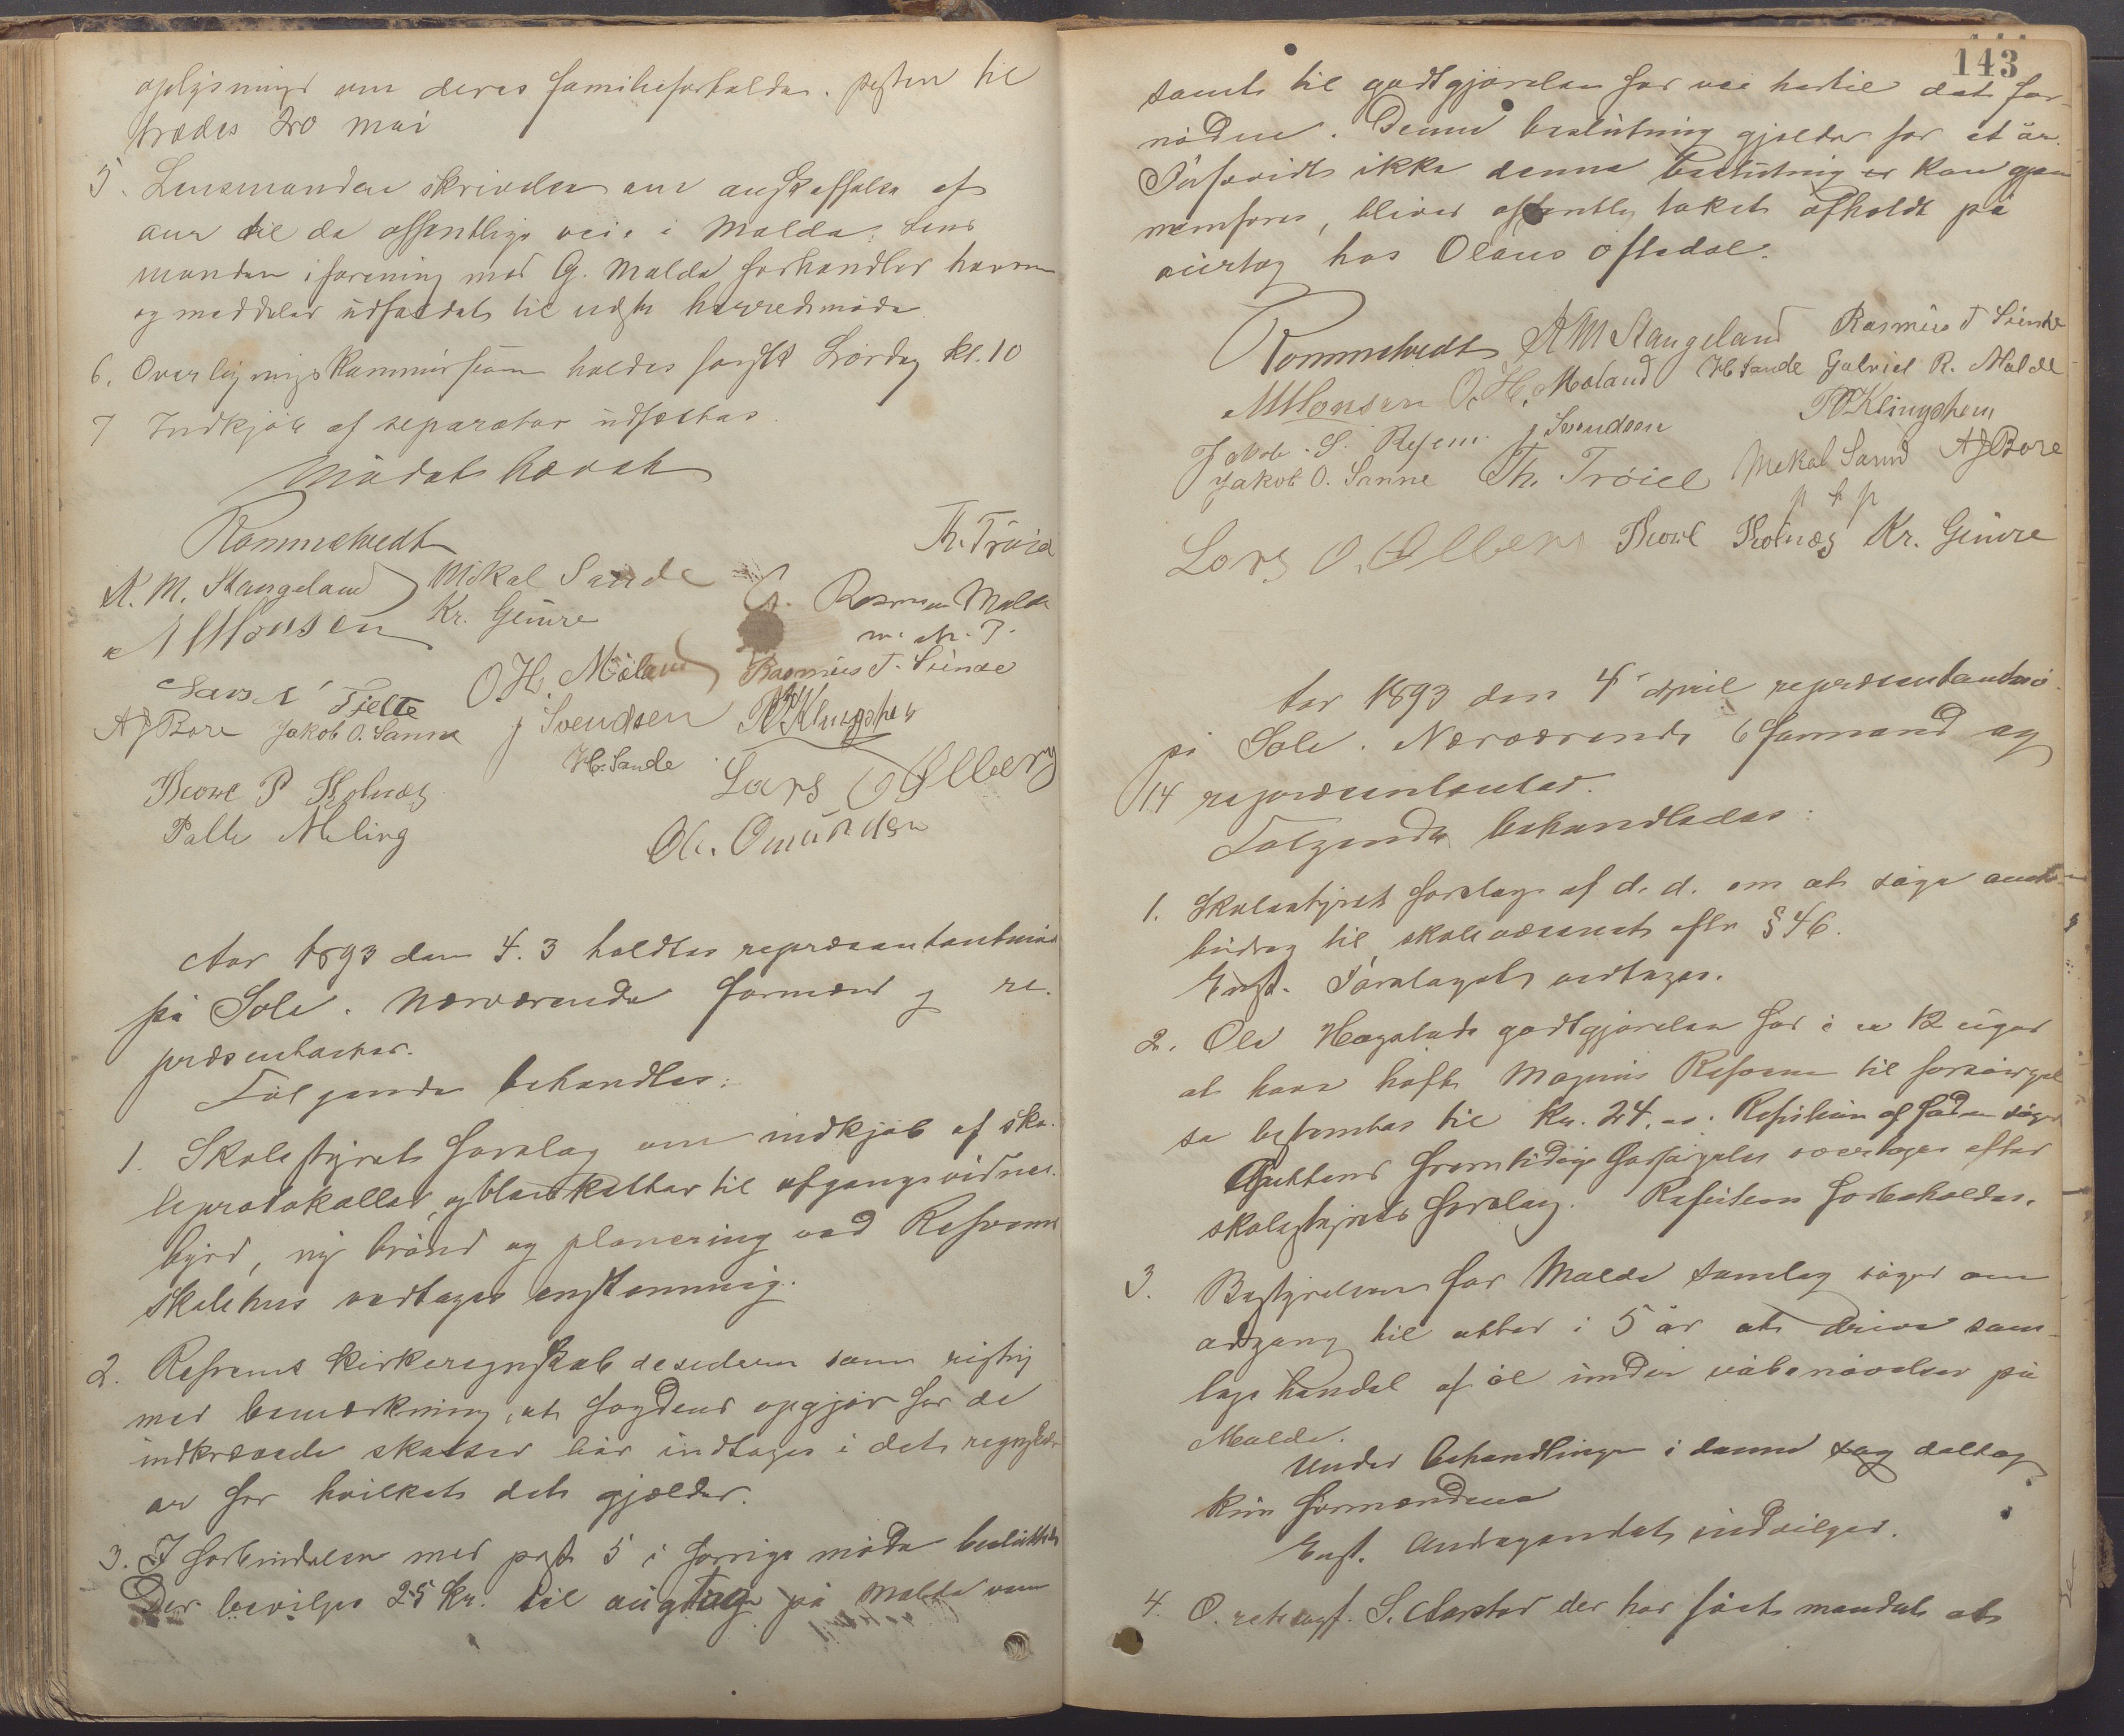 oplysninger om deres familieforholde. posten til
trædes 20 mai
5. Lensmanden skrivelse om anskaffelse af
aur til de offentlige veie i Malde. Lens
manden i forening med G. Malde forhandler herom
og meddeler udfaldet til næste herredsmøde
6. Overligningskommissionen holdes først Lørdag kl. 10
7 Indkjøb af separator udsættes.
Mødet hævet
Rommetvedt
Th. Trøiel
A. M. Stangeland Mikal Sande G. Rasmusen Malde
M Monsen Kr. Gimre m. m. P.
O. H. Møland Rasmus T. Sunde
Lars A Fjelte
A J Bore Jakob O. Sømme J Svendsen P Klingsheim
H. Sande
Thore P Skolnæs Lars O Ølberg
Palle Meling Ole Omundsen
Aar 1893 den 4. 3 holdtes repræsentantmøde
på Sole. Nærværende formænd og re-
præsentanter.
Følgende behandles:
1. Skolestyrets forslag om indkjøb af sko-
leprotokoller, og blanketter til afgangsvidnes-
byrd, ny brønd og planering ved Refsnes
skolehus vedtages enstemmig.
2. Refsnes kirkeregnskab desideres som rigtig
med bemærkning, at fogdens opgjør for de
indkrævede skatter bør indtages i det regnskabs
aar for hvilket det gjælder.
3. I forbindelse med post 5 i forrige møde besluttedes
Der bevilges 25 Kr. til augtag på Malde vam
143
samt til godtgjørelse for vei hertil det for-
nødne. Denne beslutning gjælder for et år.
Såfremt ikke denne beslutning er kan gjen
nemføres, bliver offentlig taket afholdt på
aurtag hos Olaus Oftedal.
Rommetvedt A M Stangeland Rasmus T Sunde
M Monsen O. H. Møland H Sande Gabriel R. Malde
P Klingsheim
Jakob S. Refsnes J Svendsen
Jakob O. Sømme Th. Trøiel Mikal Sande A J Bore
p t p
Lars O. Ølberg Thore Skolnæs Kr. Gimre
Aar 1893 den 4 april repræsentantmø-
på Sole. Nærværende 6 formænd og
14 repræsentanter.
Følgende behandledes:
1. Skolestyrets forslag af d. d. om at søge amts-
bidrag til skolevæsenet efter § 46.
Enst. Forslaget vedtages.
2. Ole Hægstads godtgjørelse for i ca 12 uger
at have havt Magnus Refsnes til forsørgel
se bestemtes til Kr. 24. Refusion af faderen søges
Guttens fremtidige forsørgelse overtages efter
skolestyrets forslag. Refusion forbeholdes.
3. Bestyrelsen for Malde samlag søger om
adgang til atter i 5 år at drive sam-
lags handel af øl under våbenøvelser på
Malde.
Under behandlingen i denne sag deltog
kun formændene
Enst. Andragendet indvilges.
4. O. retssagf. S. Aarstad der har fået mandat at